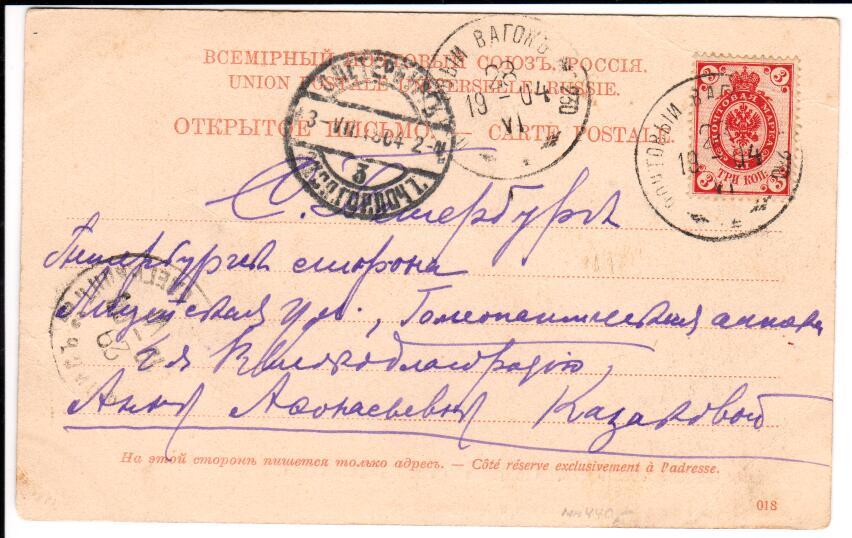 ВСЕМІРНЫЙ ПОЧТОВЫЙ СОЮЗЪ. РОССІЯ.
UNION POSTALE UNIVERSELLE. RUSSIE.
ОТКРЫТОЕ ПИСЬМО. — CARTE POSTALE.
ПОЧТОВЫЙ ВАГОНЪ
28
19 - 04
VI
3-VII.1904 2-
3
ПОЧТОВАЯ МАРКА
ТРИ КОП.
3 3 3 3
ПОЧТОВЫЙ ВАГ
19 04
VI
С. Петербургъ
Петербургск сторона
Лицейская ул., Гомеопатическая аптека
Ея Высокоблагородію
Анне Афонасьевне Казаковой
На этой сторонѣ пишется только адресъ. — Côté réserve exclusivement à l'adresse.
018